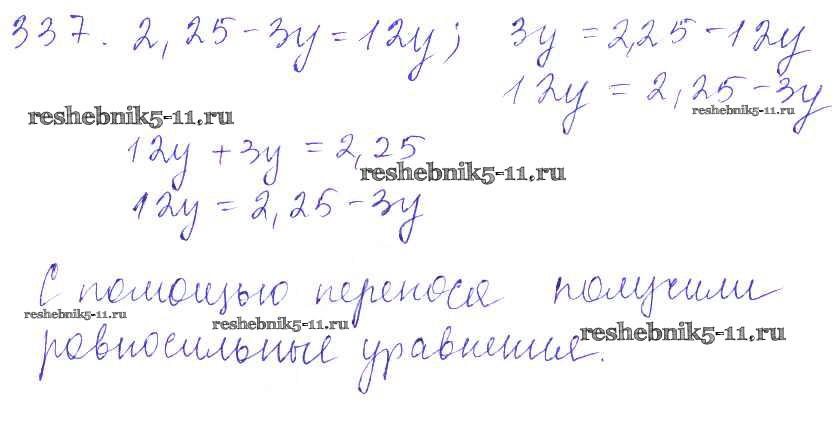 337. 2,25 - 3y = 12y; 3y = 2,25 - 12y
12y = 2,25 - 3y
reshebnik5-11.ru
reshebnik5-11.ru
12y + 3y = 2,25
reshebnik5-11.ru
12y = 2,25 - 3y
С помощью переноса получили
reshebnik5-11.ru
reshebnik5-11.ru
reshebnik5-11.ru
равносильные уравнения.